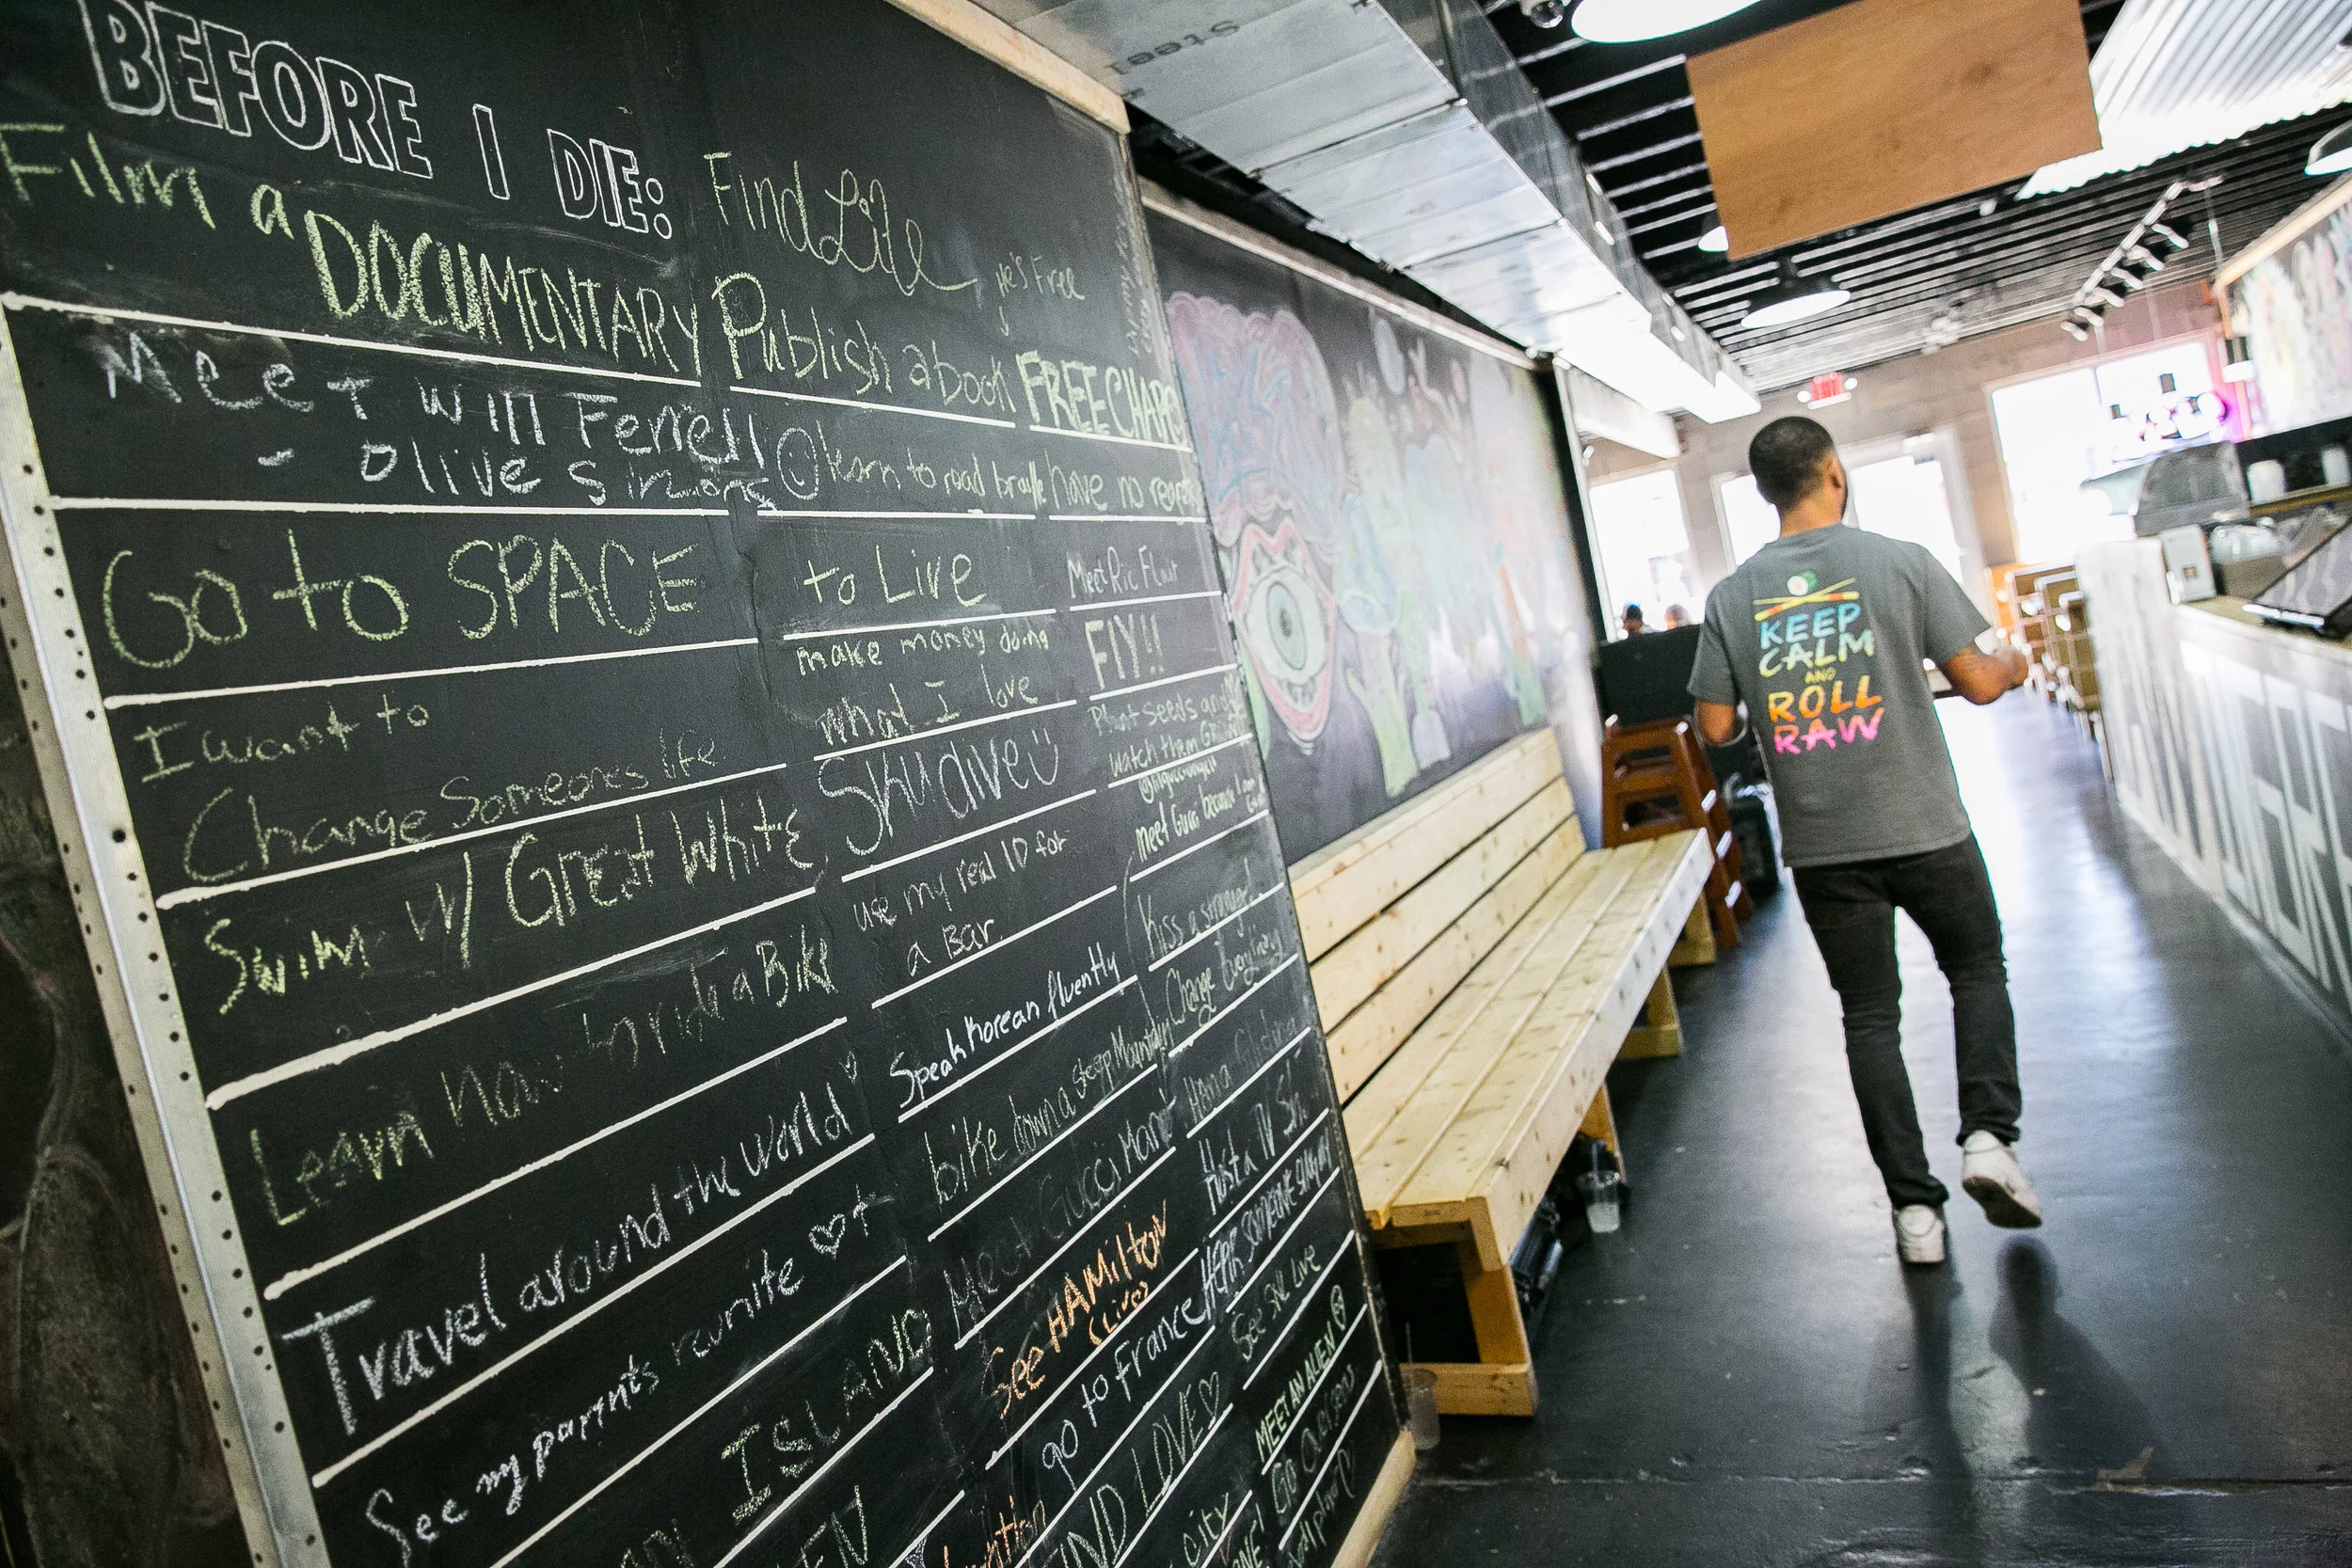 BEFORE I DIE:
Film a
DOCUMENTARY
Meet Will Ferrell
- Olive
Go to SPACE
I want to
Change Someones life
Swim w/ Great White
Learn how to ride a Bike
Travel around the world
See my parents reunite
ISLAND
Find Life
he's Free
Publish a book
learn to read braille
to Live
make money doing
what I love
Skydive
use my real ID for
a Bar
Speak Korean fluently
bike down a steep Mountain
Meet Gucci Mane
See HAMILTON
(Live)
go to France
LOVE
city
FREE CHAPO
have no regrets
Meet Ric Flair
FLY!!
Plant seeds and
watch them Grow
meet Gucci because I am
Kiss a stranger!
Change Everything
Host a TV Sh
HEAR SOMEONE
See SNL Live
MEET AN ALIEN
Go
Steel
KEEP
CALM
AND
ROLL
RAW